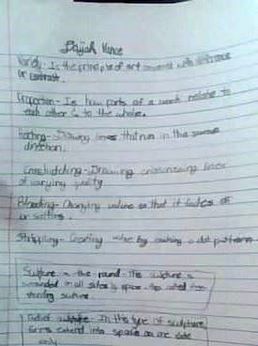 Vance
Variety - Is the principle of art concerned with difference
or contrast.
Proportion - Is how parts of a work relate to
each other & to the whole.
Hatching - Drawing lines that run in the same
direction.
Crosshatching - Drawing crisscrossing lines
of varying
Blending - Changing value so that it fades
or
Stippling - Creating value by making a dot patterns
in the round - this sculpture is
surrounded on all sides by space - also called free
standing
In this type of sculpture,
forms extend into space on one side
only